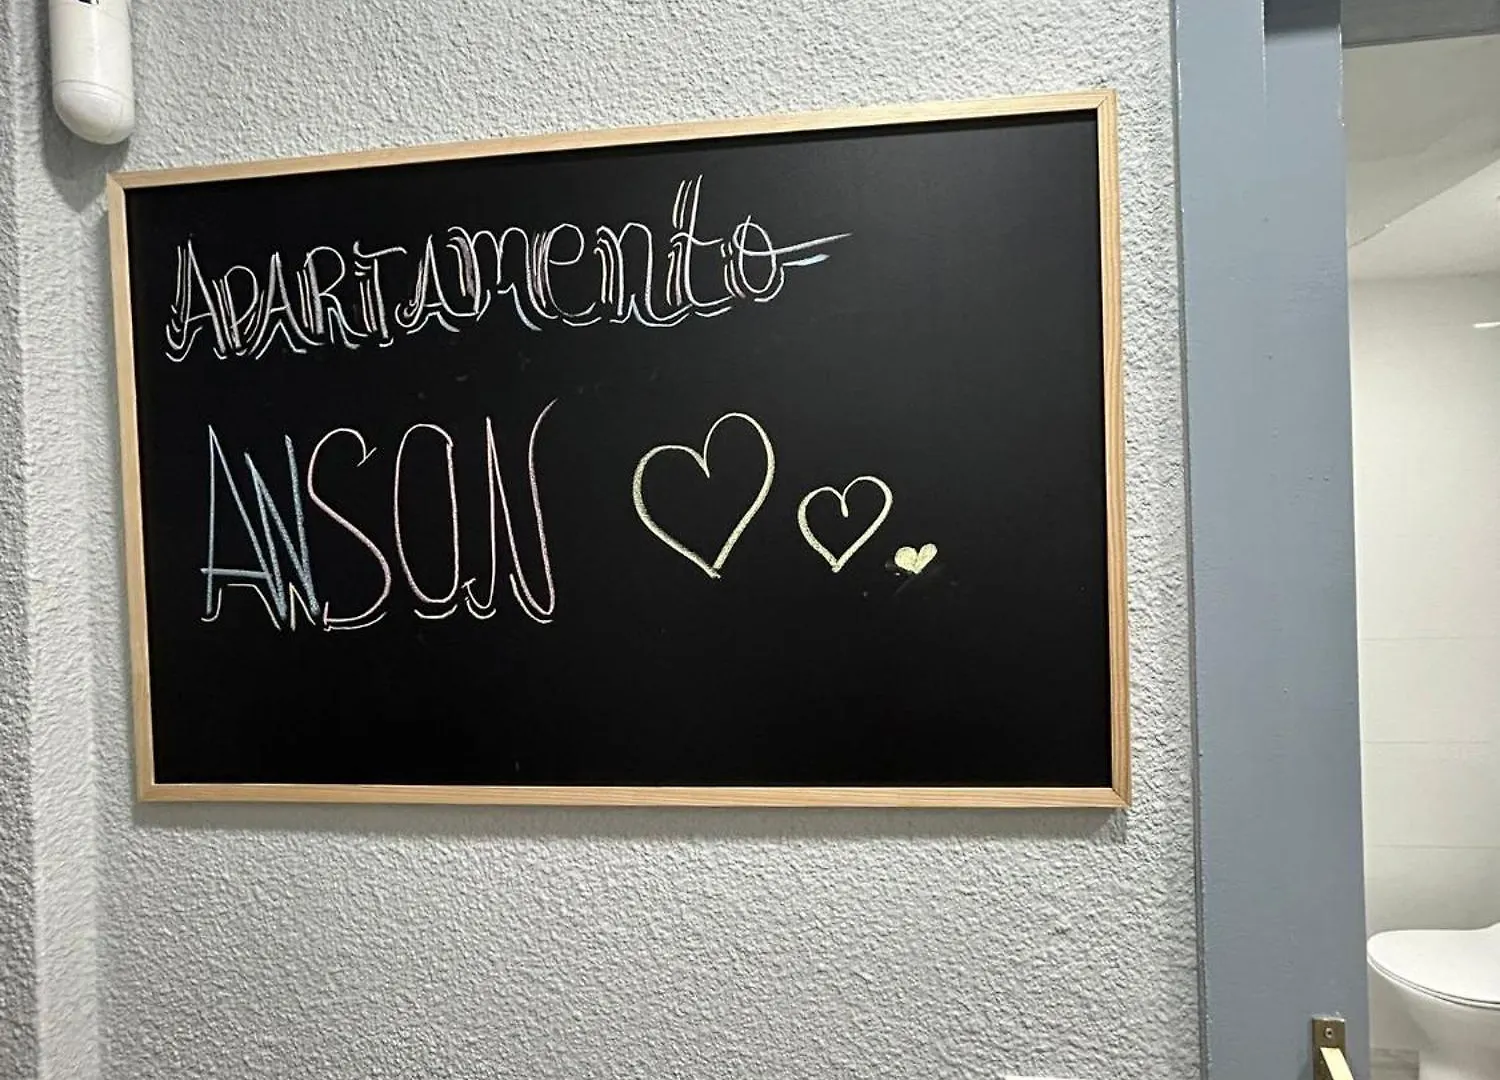 Apartamento
ANSON